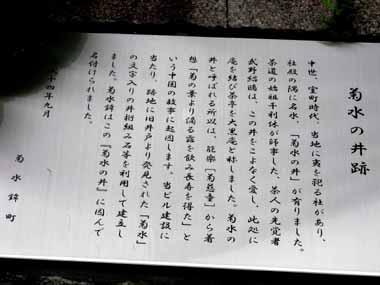 菊水の井跡
中世、室町時代、当地に夷を祀る社があり、
社殿の隅に名水、「菊水の井」が有りました。
茶道の始祖千利休が師事した、茶人の先覚者
武野紹鴎は、この井をこよなく愛し、此処に
庵を結び茶亭を大黒庵と称しました。菊水の
井と呼ばれる所以は、能楽「菊慈童」から着
想「菊の葉より滴る露を飲み長寿を得た」と
いう中国の故事に起因します。当ビル建設に
当たり、路地に旧井戸より発見された「菊水」
の文字入りの井桁組み石等を利用して建立し
ました。菊水鉾はこの『菊水の井』に因んで
名付けられました。
十四年九月
菊水鉾町